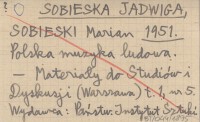 ?
SOBIESKA JADWIGA,
SOBIESKI Marian 1951.
Polska muzyka ludowa.
— Materiały do Studiów i
Dyskusji (Warszawa) t. 1, nr 5.
Wydawca: Państw. Instytut Sztuki